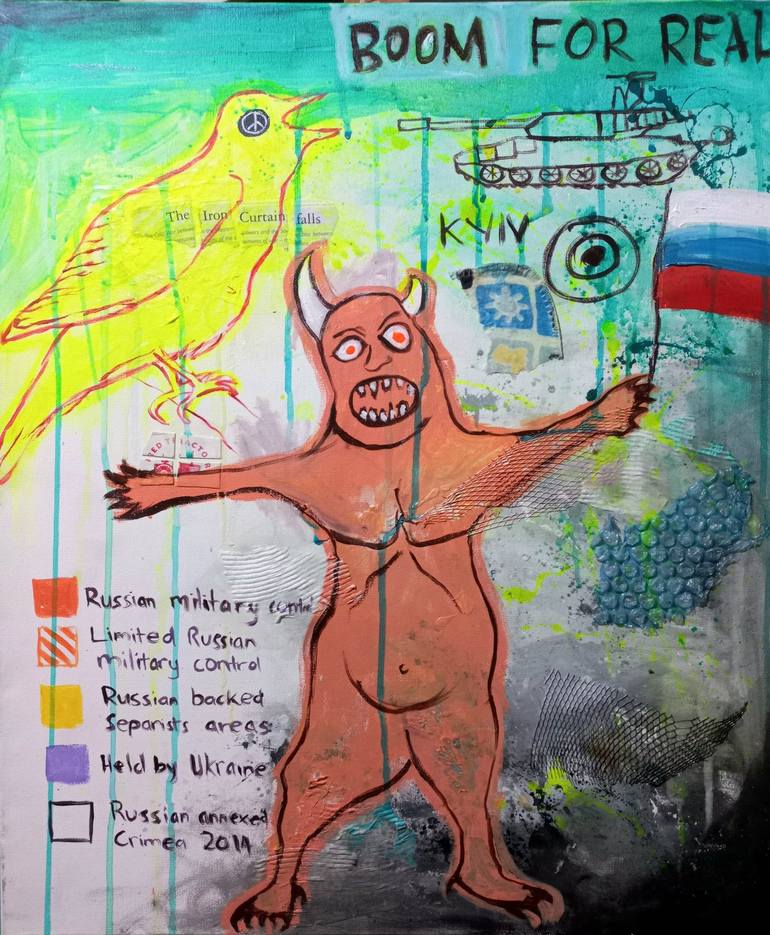 BOOM FOR REAL
The Iron Curtain falls
KYIV
Russian military
Limited Russian
military control
Russian backed
Separists areas
Held by Ukraine
Russian annexed
Crimea 2014